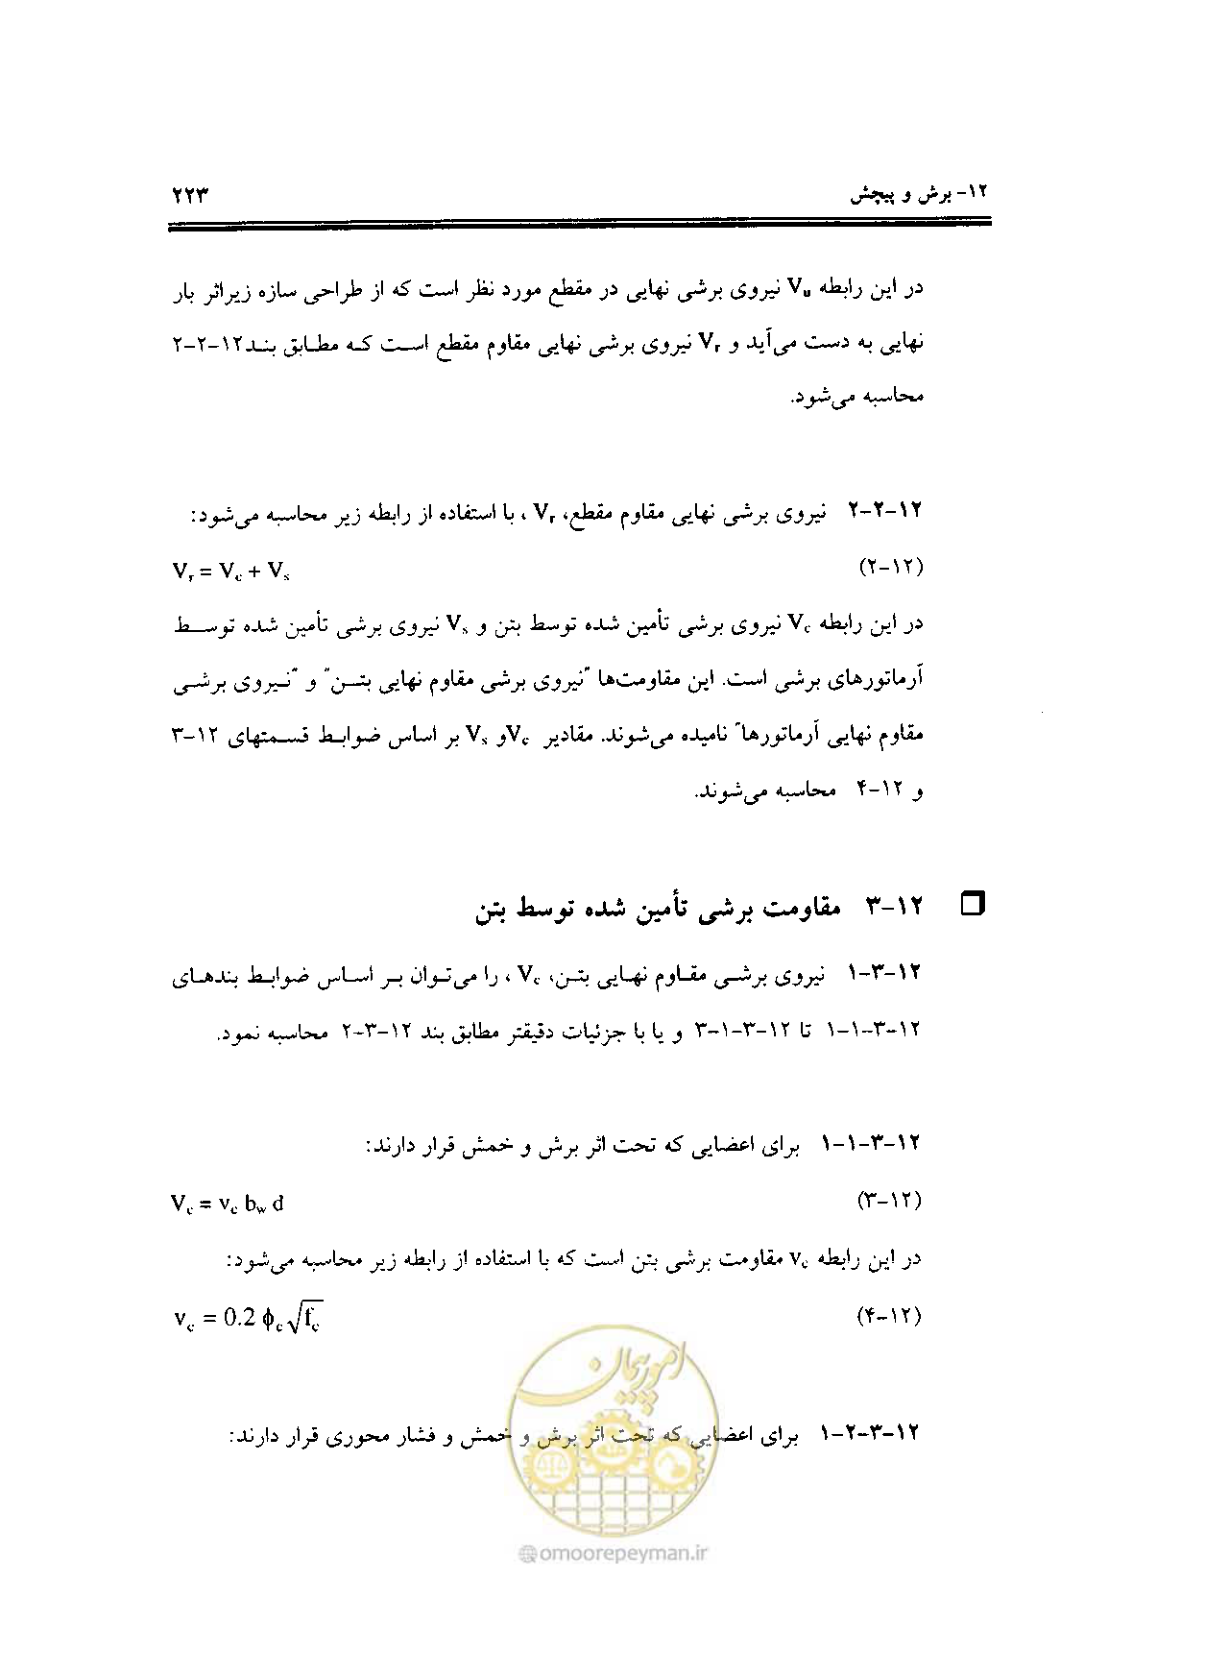 ۱۲- برش و پیچش ۲۲۳
در این رابطه Vu نیروی برشی نهایی در مقطع مورد نظر است که از طراحی سازه زیراثر بار
نهایی به دست می‌آید و Vr نیروی برشی نهایی مقاوم مقطع است که مطابق بند۱۲-۲-۲
محاسبه می‌شود.
۱۲-۲-۲ نیروی برشی نهایی مقاوم مقطع، Vr ، با استفاده از رابطه زیر محاسبه می‌شود:
Vr = Vc + Vs (۲-۱۲)
در این رابطه Vc نیروی برشی تأمین شده توسط بتن و Vs نیروی برشی تأمین شده توسط
آرماتورهای برشی است. این مقاومت‌ها "نیروی برشی مقاوم نهایی بتن" و "نیروی برشی
مقاوم نهایی آرماتورها" نامیده می‌شوند. مقادیر Vc و Vs بر اساس ضوابط قسمتهای ۱۲-۳
و ۱۲-۴ محاسبه می‌شوند.
۱۲-۳ مقاومت برشی تأمین شده توسط بتن
۱۲-۳-۱ نیروی برشی مقاوم نهایی بتن، Vc ، را می‌توان بر اساس ضوابط بندهای
۱۲-۳-۱-۱ تا ۱۲-۳-۱-۳ و یا با جزئیات دقیقتر مطابق بند ۱۲-۳-۲ محاسبه نمود.
۱۲-۳-۱-۱ برای اعضایی که تحت اثر برش و خمش قرار دارند:
Vc = vc bw d (۳-۱۲)
در این رابطه vc مقاومت برشی بتن است که با استفاده از رابطه زیر محاسبه می‌شود:
vc = 0.2 ϕc √fc (۴-۱۲)
۱۲-۳-۲-۱ برای اعضایی که تحت اثر برش و خمش و فشار محوری قرار دارند:
امور پیمان
@omoorepeyman.ir